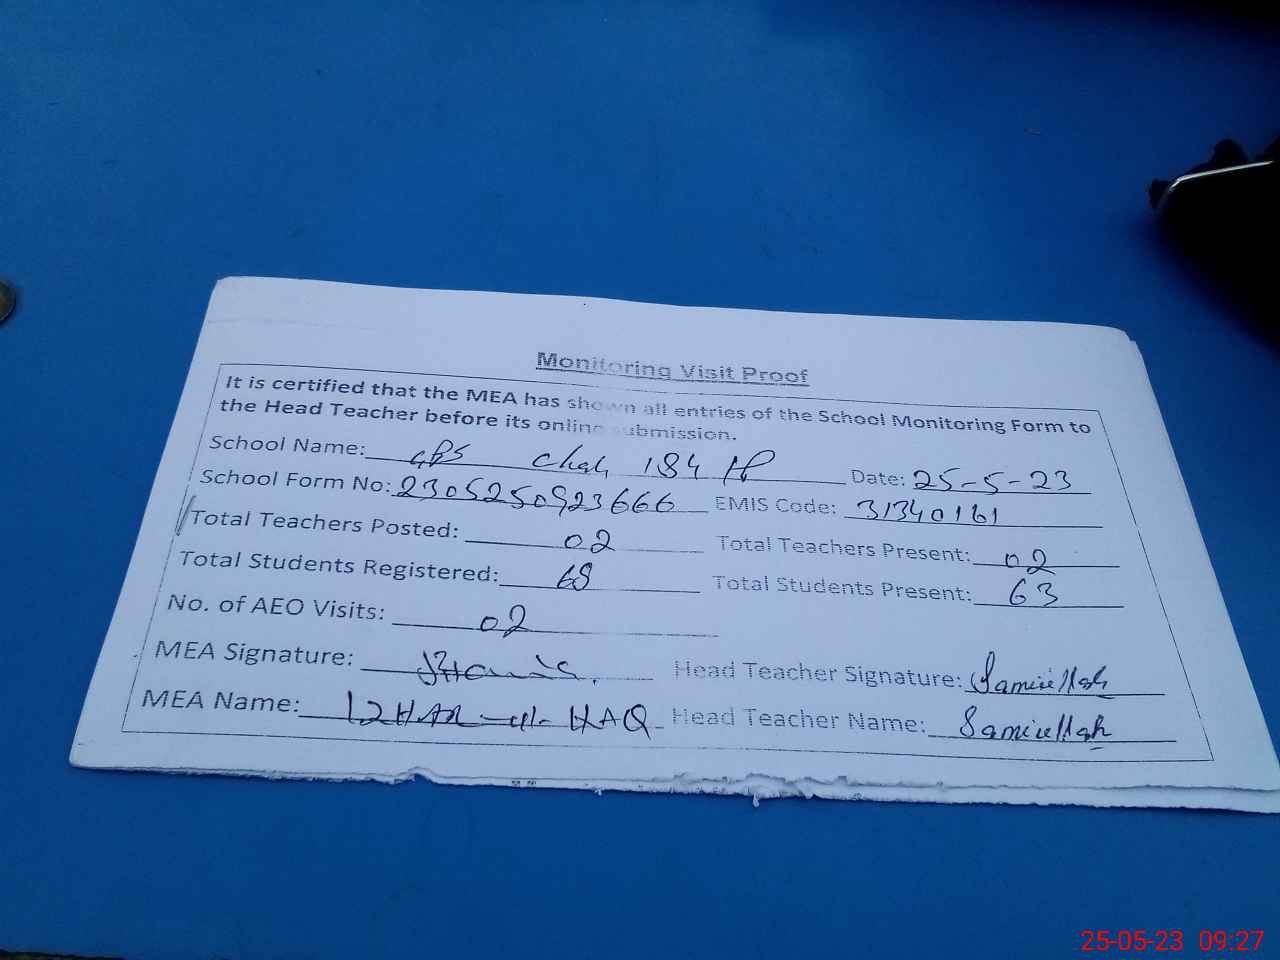 Monitoring Visit Proof
It is certified that the MEA has shown all entries of the School Monitoring Form to
the Head Teacher before its online submission.
School Name: GPS Chak 184 P Date: 25-5-23
School Form No: 2305250923666 EMIS Code: 31340161
Total Teachers Posted: 02 Total Teachers Present: 02
Total Students Registered: 68 Total Students Present: 63
No. of AEO Visits: 02
MEA Signature: Head Teacher Signature: Samiullah
MEA Name: IZHAR-ul-HAQ Head Teacher Name: Samiullah
25-05-23 09:27